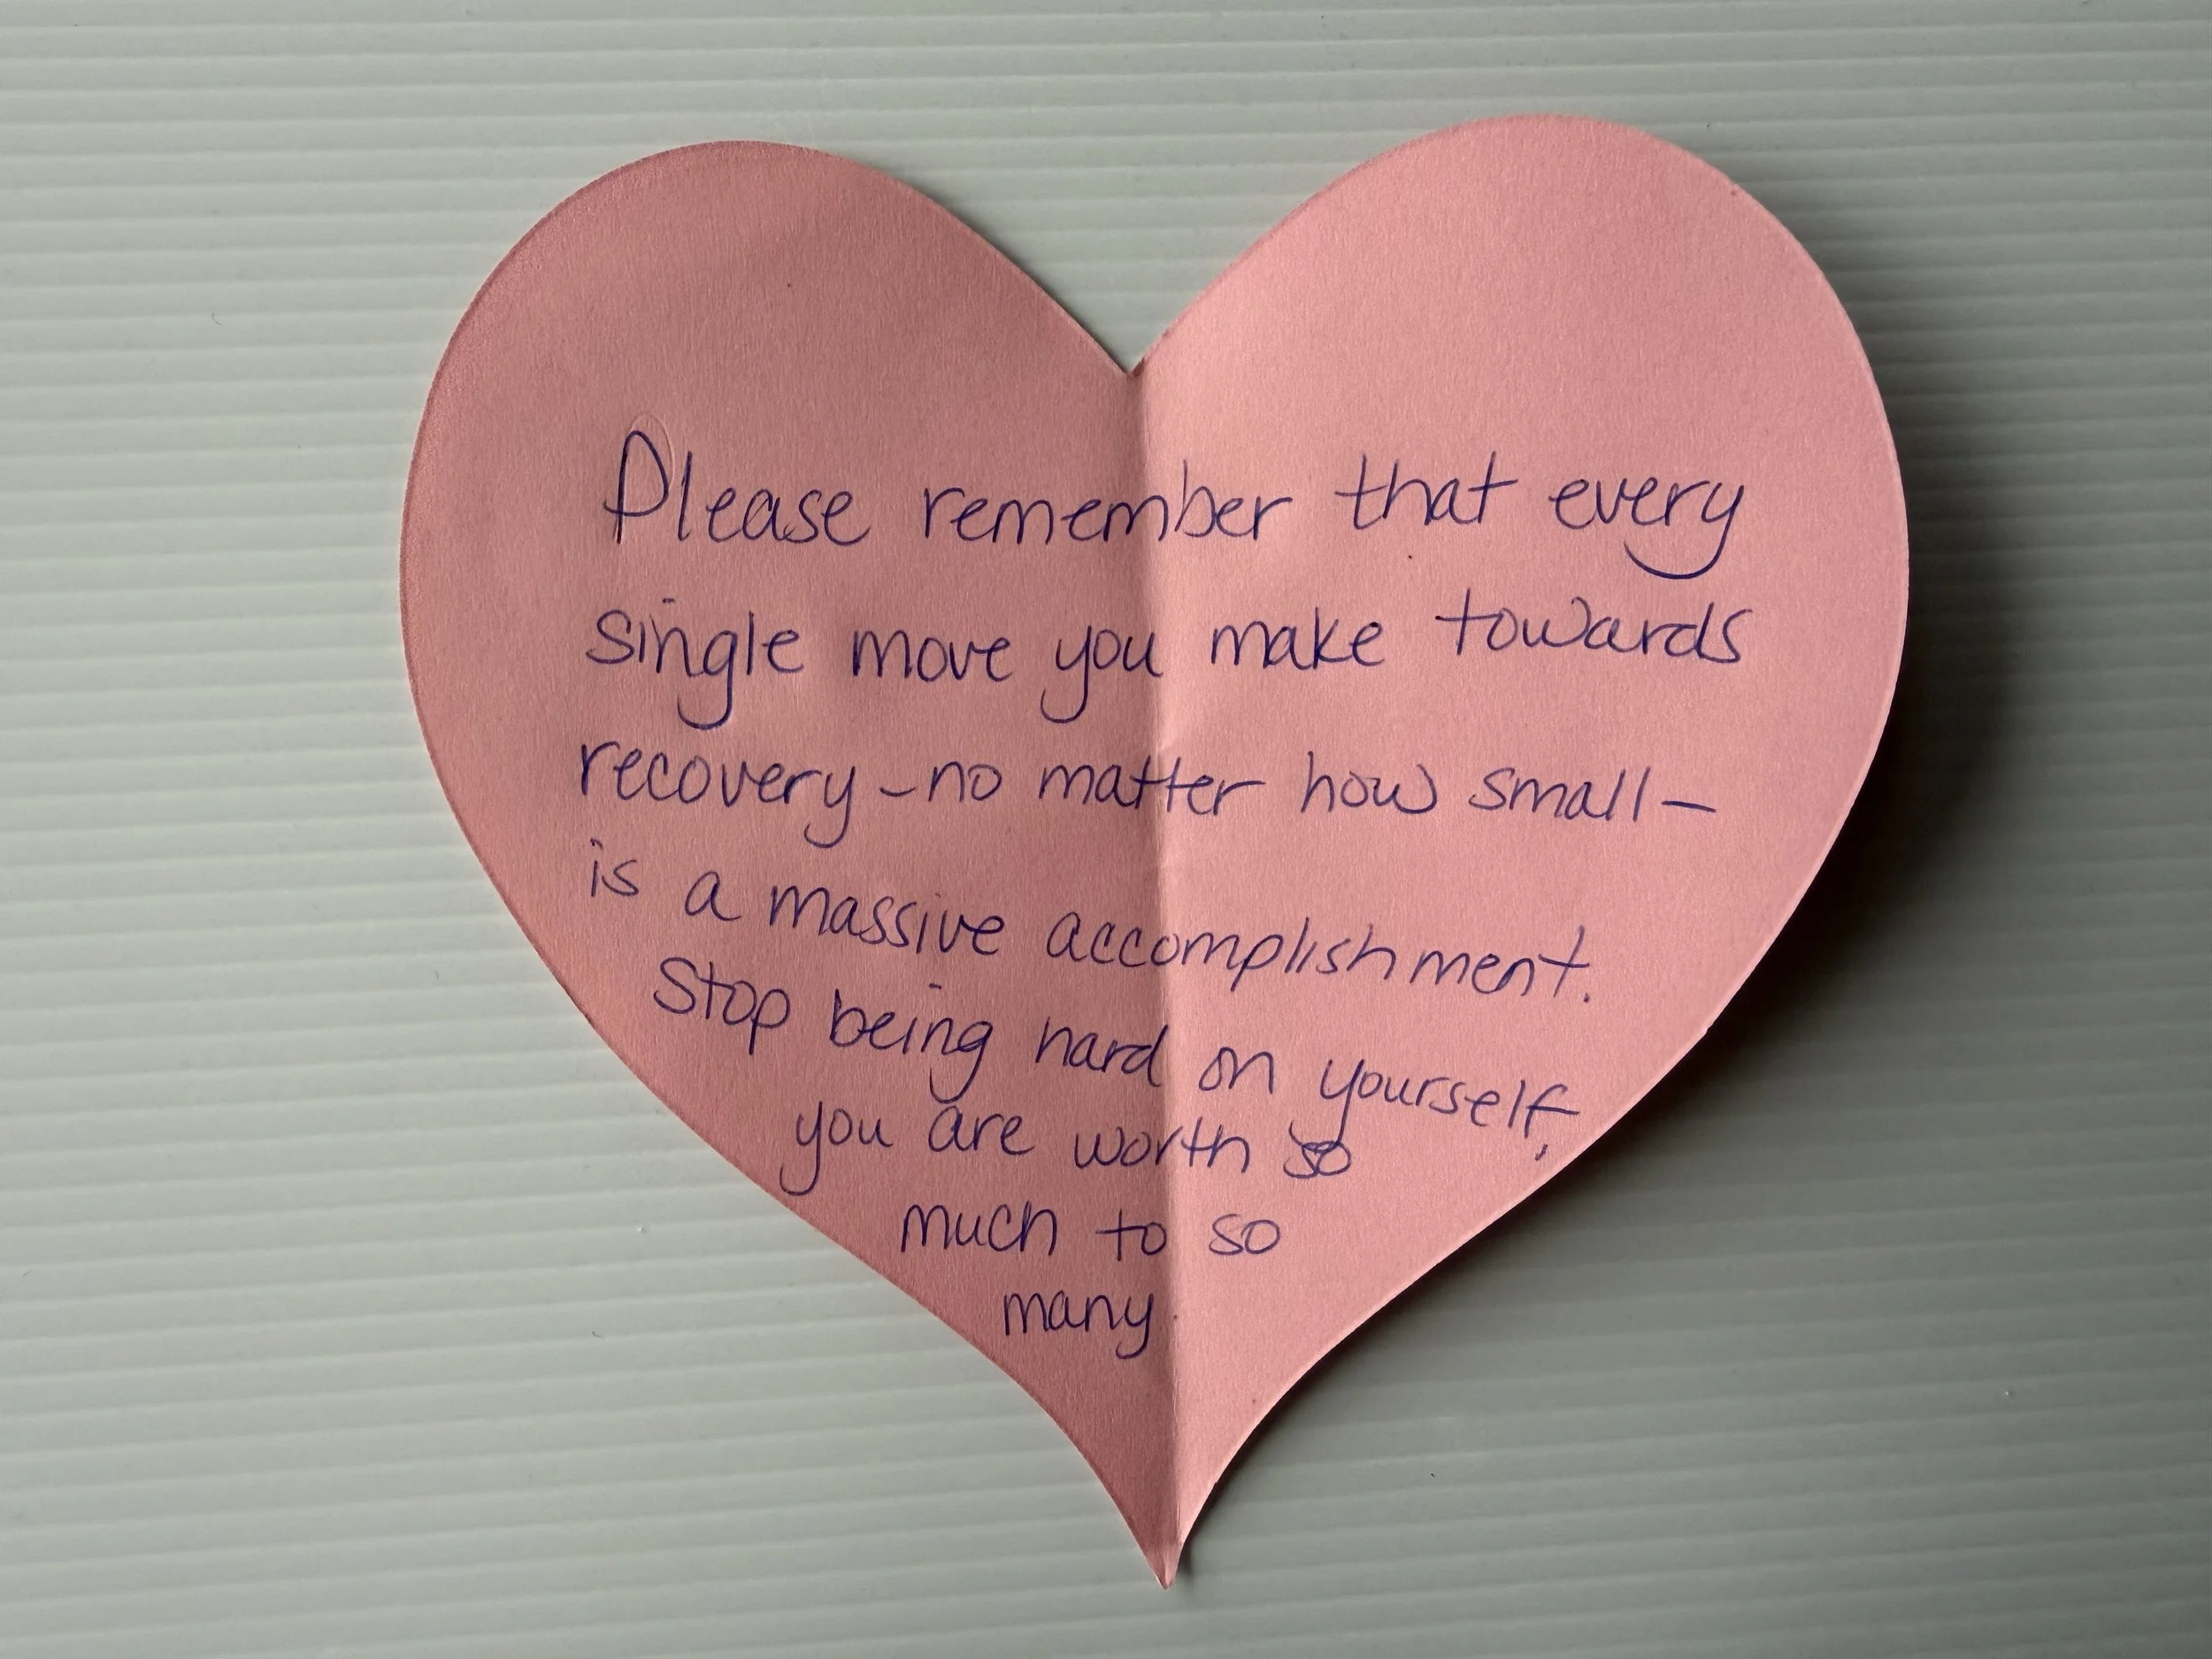 Please remember that every
single move you make towards
recovery - no matter how small -
is a massive accomplishment.
Stop being hard on yourself,
you are worth so
much to so
many